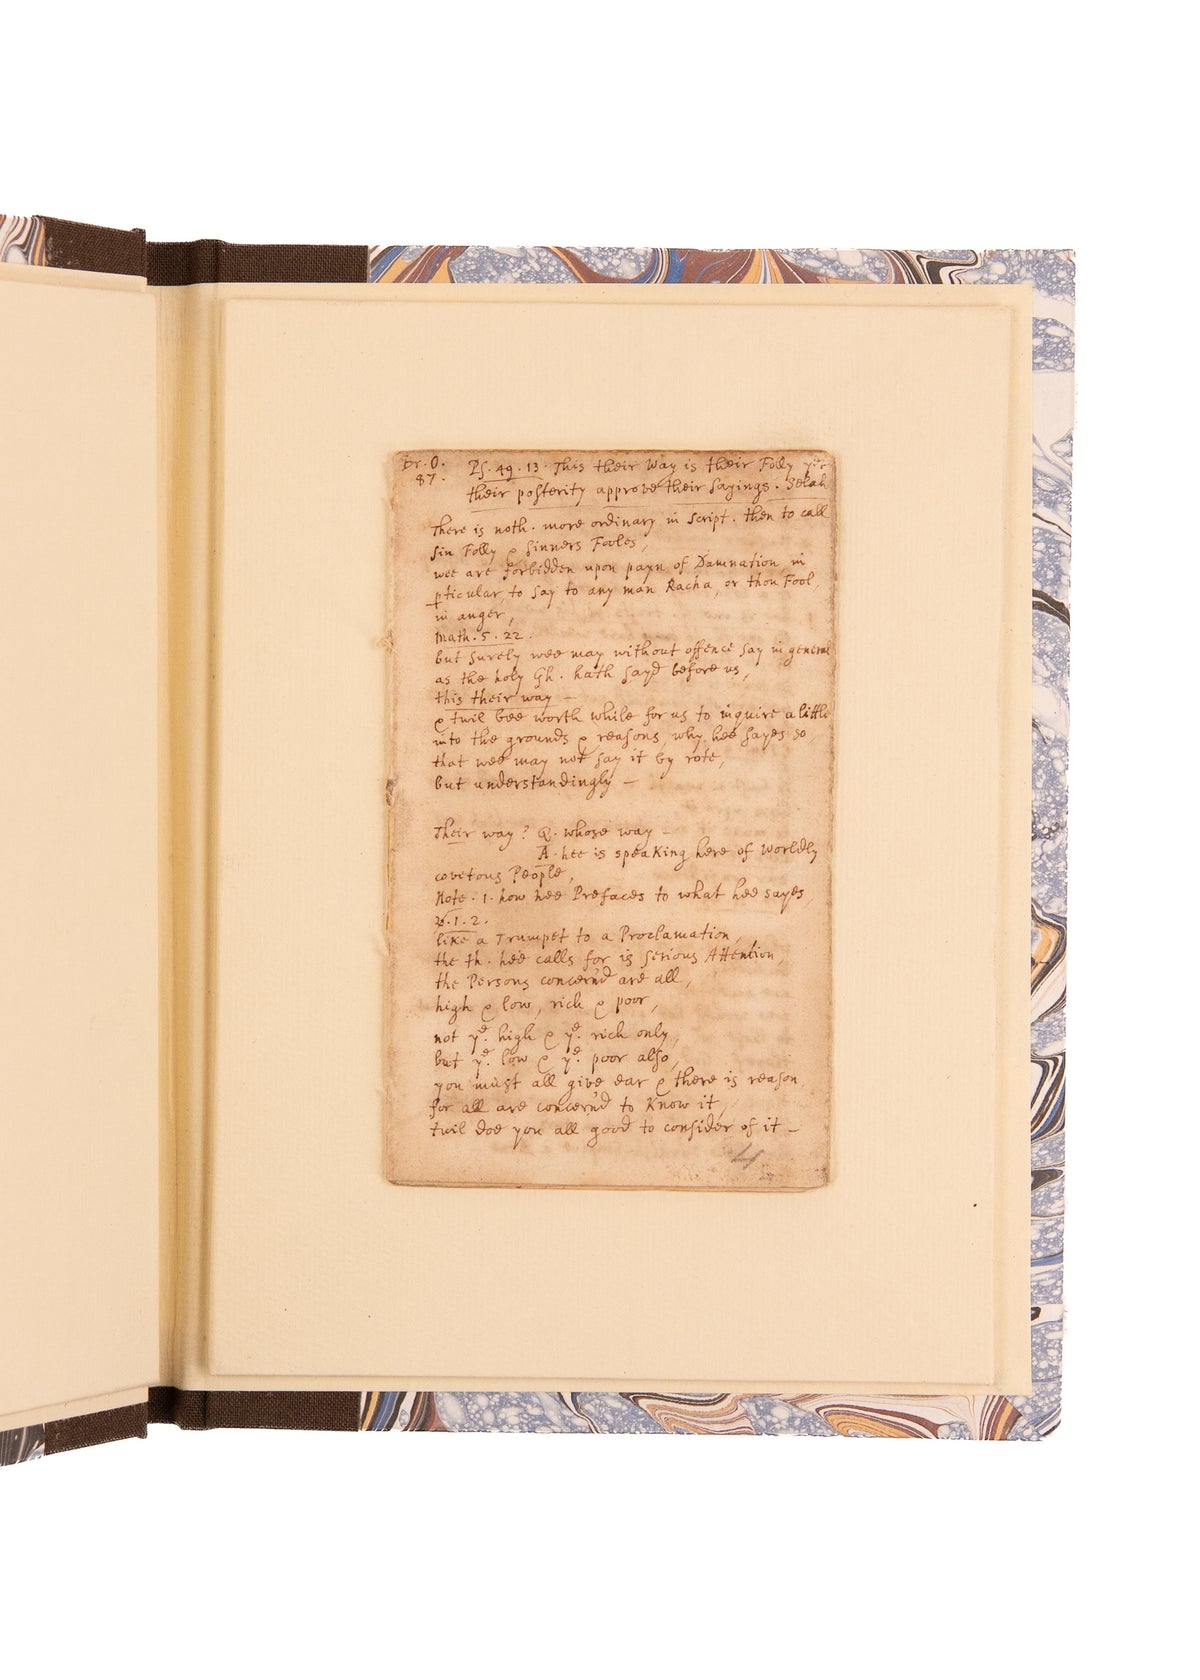 Br. O. Ps. 49. 13. This their Way is their Folly yet
87. their posterity approve their Sayings. Selah
There is noth. more ordinary in Script. then to call
Sin Folly & Sinners Fooles,
wee are forbidden upon payn of Damnation, in
pticular, to Say to any man Racha, or thou Fool,
in anger,
Math. 5. 22.
but Surely wee may without offence Say in general
as the holy Gh. hath Sayd before us,
this their way —
& twil bee worth while for us to inquire a little
into the grounds & reasons, why hee Sayes so,
that wee may not Say it by rote,
but understandingly —
Their way? Q. whose way —
A. hee is speaking here of Worldly
covetous People,
Note. 1. how hee Prefaces to what hee sayes,
v. 1. 2.
like a Trumpet to a Proclamation,
the th. hee calls for is Serious Attention,
the Persons concern'd are all,
high & low, rich & poor,
not ye. high & ye. rich only,
but ye. low & ye. poor also,
you must all give ear & there is reason,
for all are concern'd to Know it,
twil doe you all good to consider of it —
4